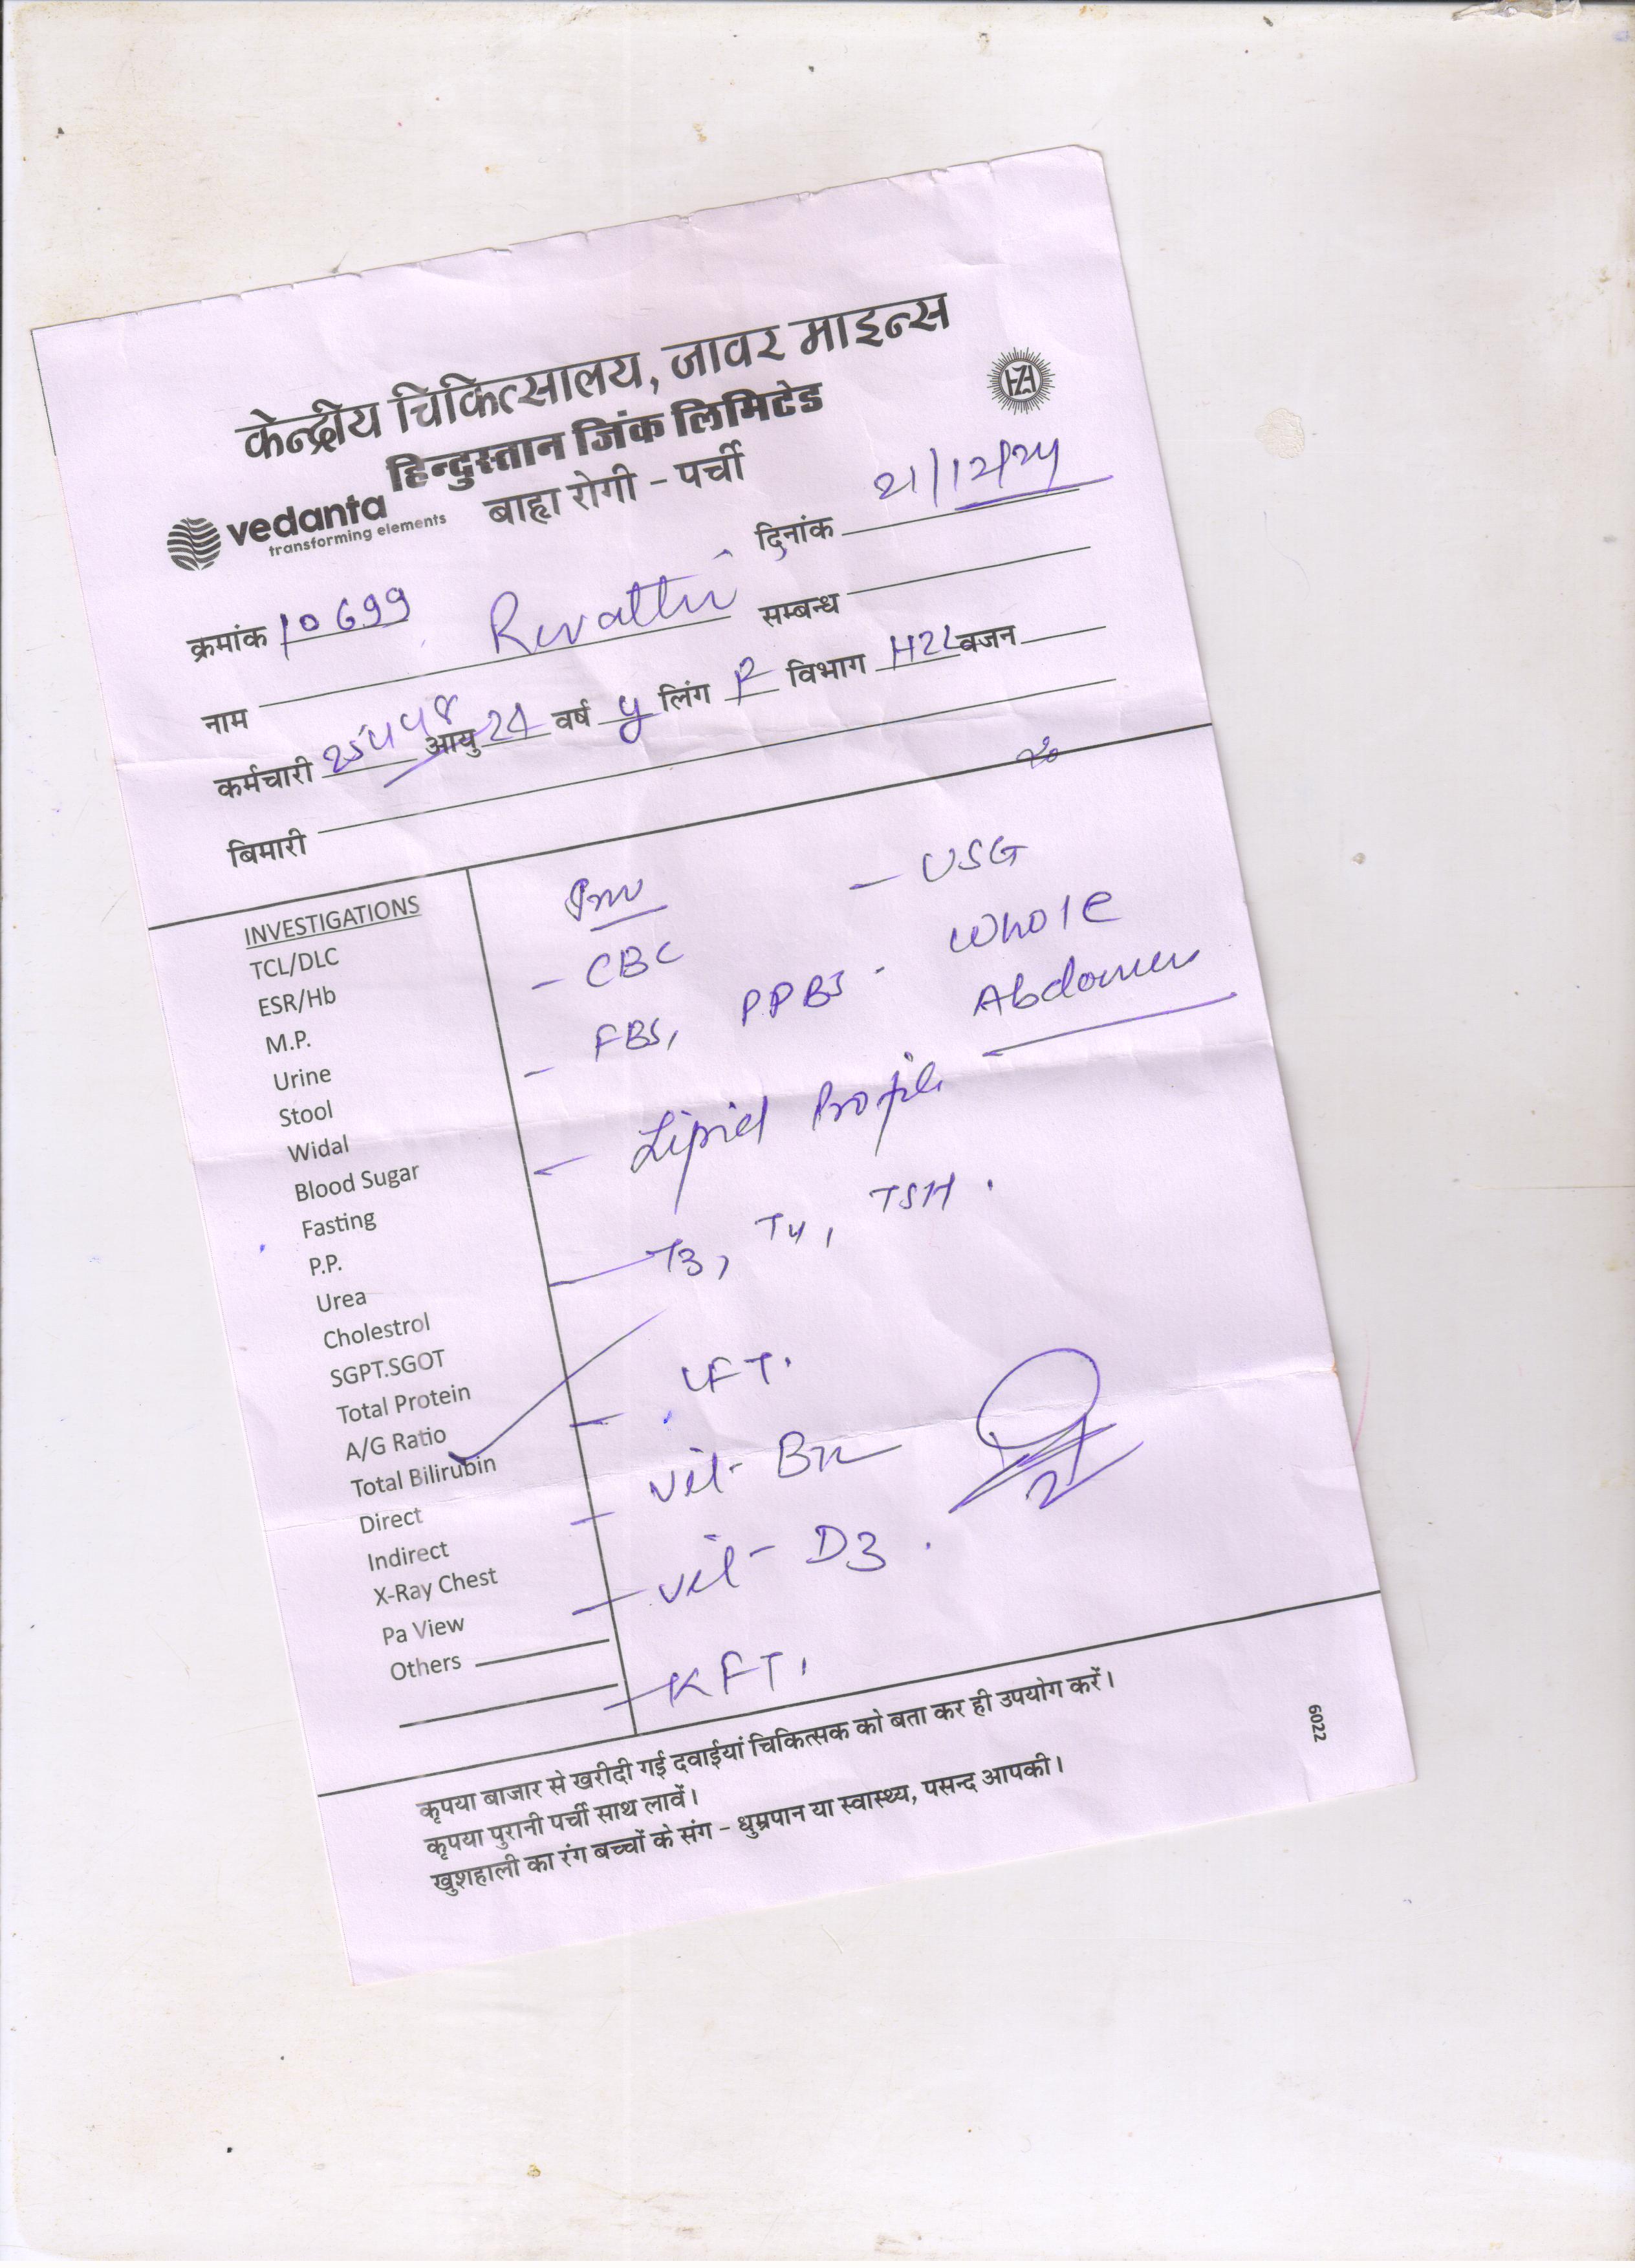 केन्द्रीय चिकित्सालय, जावर माइन्स
हिन्दुस्तान जिंक लिमिटेड
vedanta
transforming elements
बाह्य रोगी - पर्ची
दिनांक 21/12/24
क्रमांक 10699
नाम Revathi सम्बन्ध
कर्मचारी आयु 24 वर्ष y लिंग F विभाग HZL वजन
बिमारी
INVESTIGATIONS
TCL/DLC
ESR/Hb
M.P.
Urine
Stool
Widal
Blood Sugar
Fasting
P.P.
Urea
Cholestrol
SGPT.SGOT
Total Protein
A/G Ratio
Total Bilirubin
Direct
Indirect
X-Ray Chest
Pa View
Others
- CBC
- FBS, PPBS
- Lipid Profile
- T3, T4, TSH.
- LFT.
- Vit- B12
- Vit- D3.
- KFT.
- USG
Whole
Abdomen
कृपया बाजार से खरीदी गई दवाईयां चिकित्सक को बता कर ही उपयोग करें।
कृपया पुरानी पर्ची साथ लावें।
खुशहाली का रंग बच्चों के संग - धुम्रपान या स्वास्थ्य, पसन्द आपकी।
6022